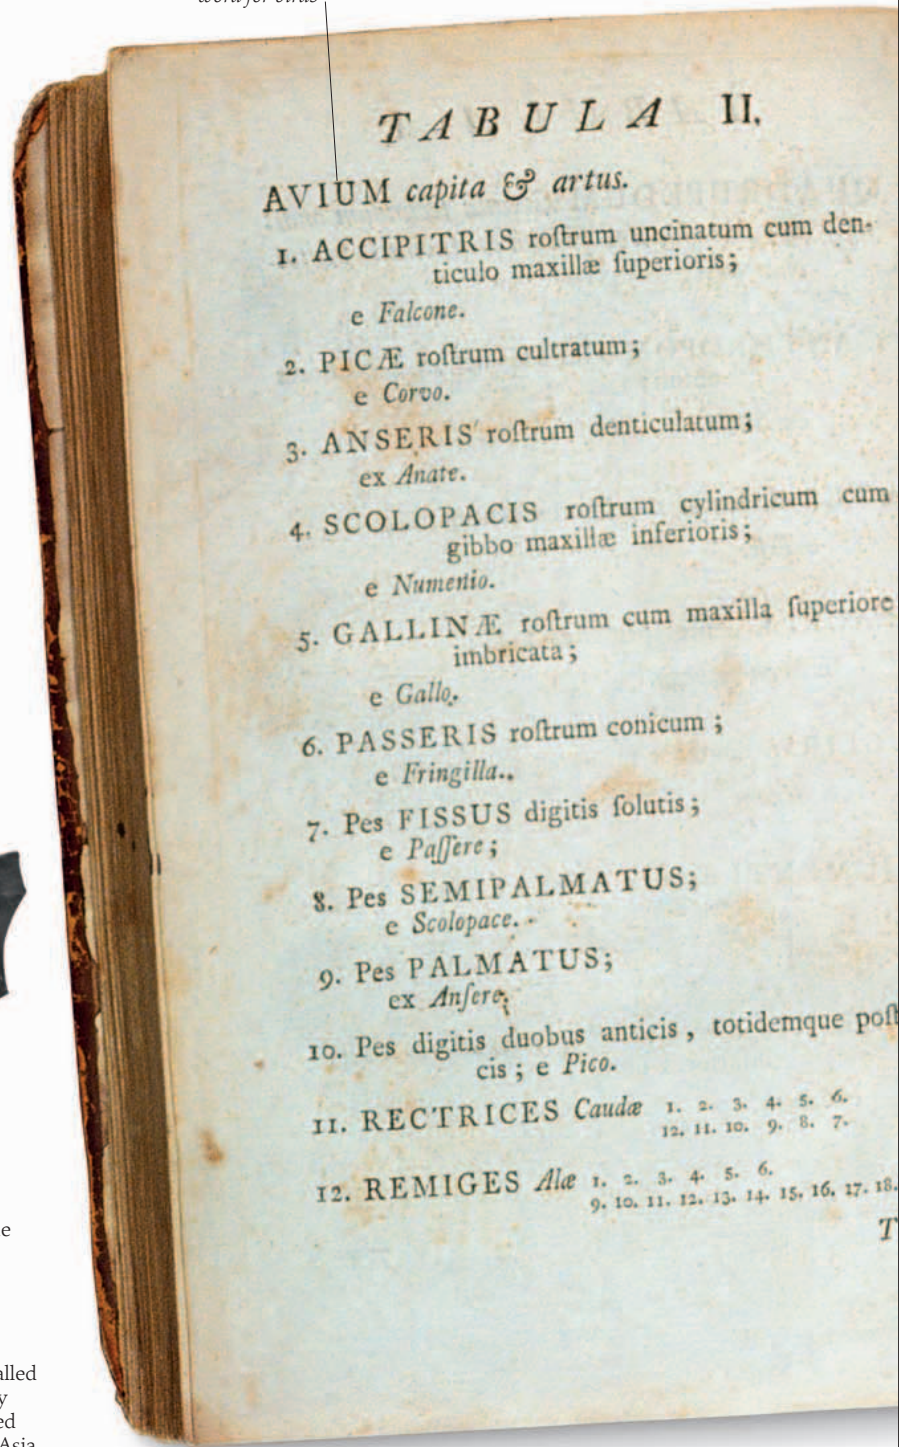 word for birds
TABULA II.
AVIUM capita & artus.
1. ACCIPITRIS roſtrum uncinatum cum den-
ticulo maxillæ ſuperioris;
e Falcone.
2. PICÆ roſtrum cultratum;
e Corvo.
3. ANSERIS roſtrum denticulatum;
ex Anate.
4. SCOLOPACIS roſtrum cylindricum cum
gibbo maxillæ inferioris;
e Numenio.
5. GALLINÆ roſtrum cum maxilla ſuperiore
imbricata;
e Gallo.
6. PASSERIS roſtrum conicum;
e Fringilla.
7. Pes FISSUS digitis ſolutis;
e Paſſere;
8. Pes SEMIPALMATUS;
e Scolopace.
9. Pes PALMATUS;
ex Anſere;
10. Pes digitis duobus anticis, totidemque poſt
cis; e Pico.
11. RECTRICES Caudæ 1. 2. 3. 4. 5. 6.
12. 11. 10. 9. 8. 7.
12. REMIGES Alæ 1. 2. 3. 4. 5. 6.
9. 10. 11. 12. 13. 14. 15. 16. 17. 18.
T
e
alled
y
ed
Asia